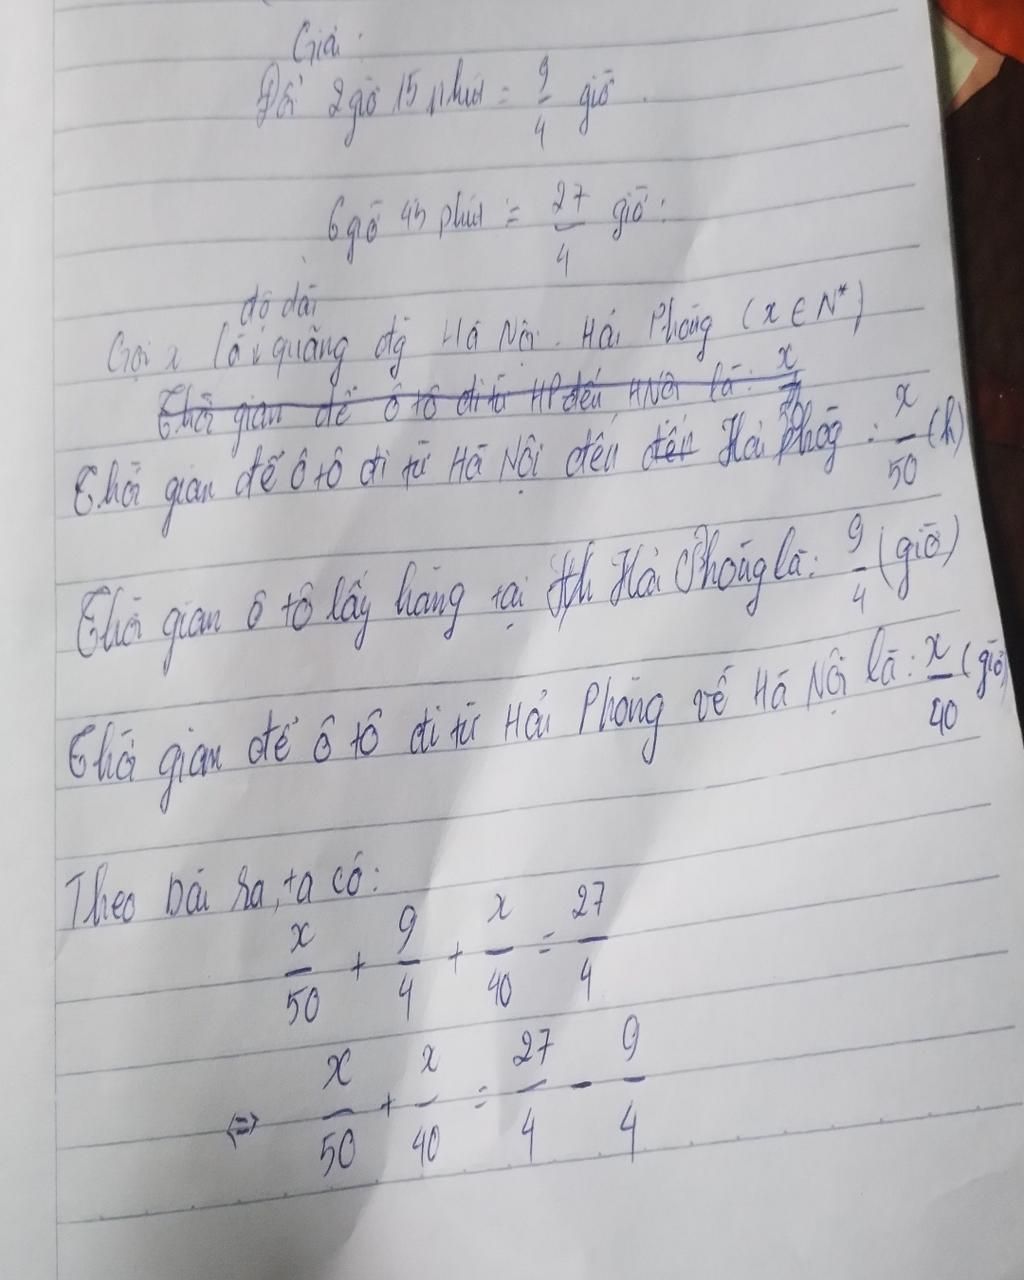 Giải:
Đổi 2 giờ 15 phút = 9/4 giờ.
6 giờ 45 phút = 27/4 giờ.
độ dài
Gọi x là quãng đg Hà Nội - Hải Phòng (x ∈ N*)
Thời gian để ô tô đi từ HP đến HNội là: x
Thời gian để ô tô đi từ Hà Nội đến đến Hải Phòg: x/50 (h)
Thời gian ô tô lấy hàng tại Hải Phòng là: 9/4 (giờ)
Thời gian để ô tô đi từ Hải Phòng về Hà Nội là: x/40 (giờ)
Theo bài ra, ta có:
x/50 + 9/4 + x/40 = 27/4
⇔ x/50 + x/40 = 27/4 - 9/4